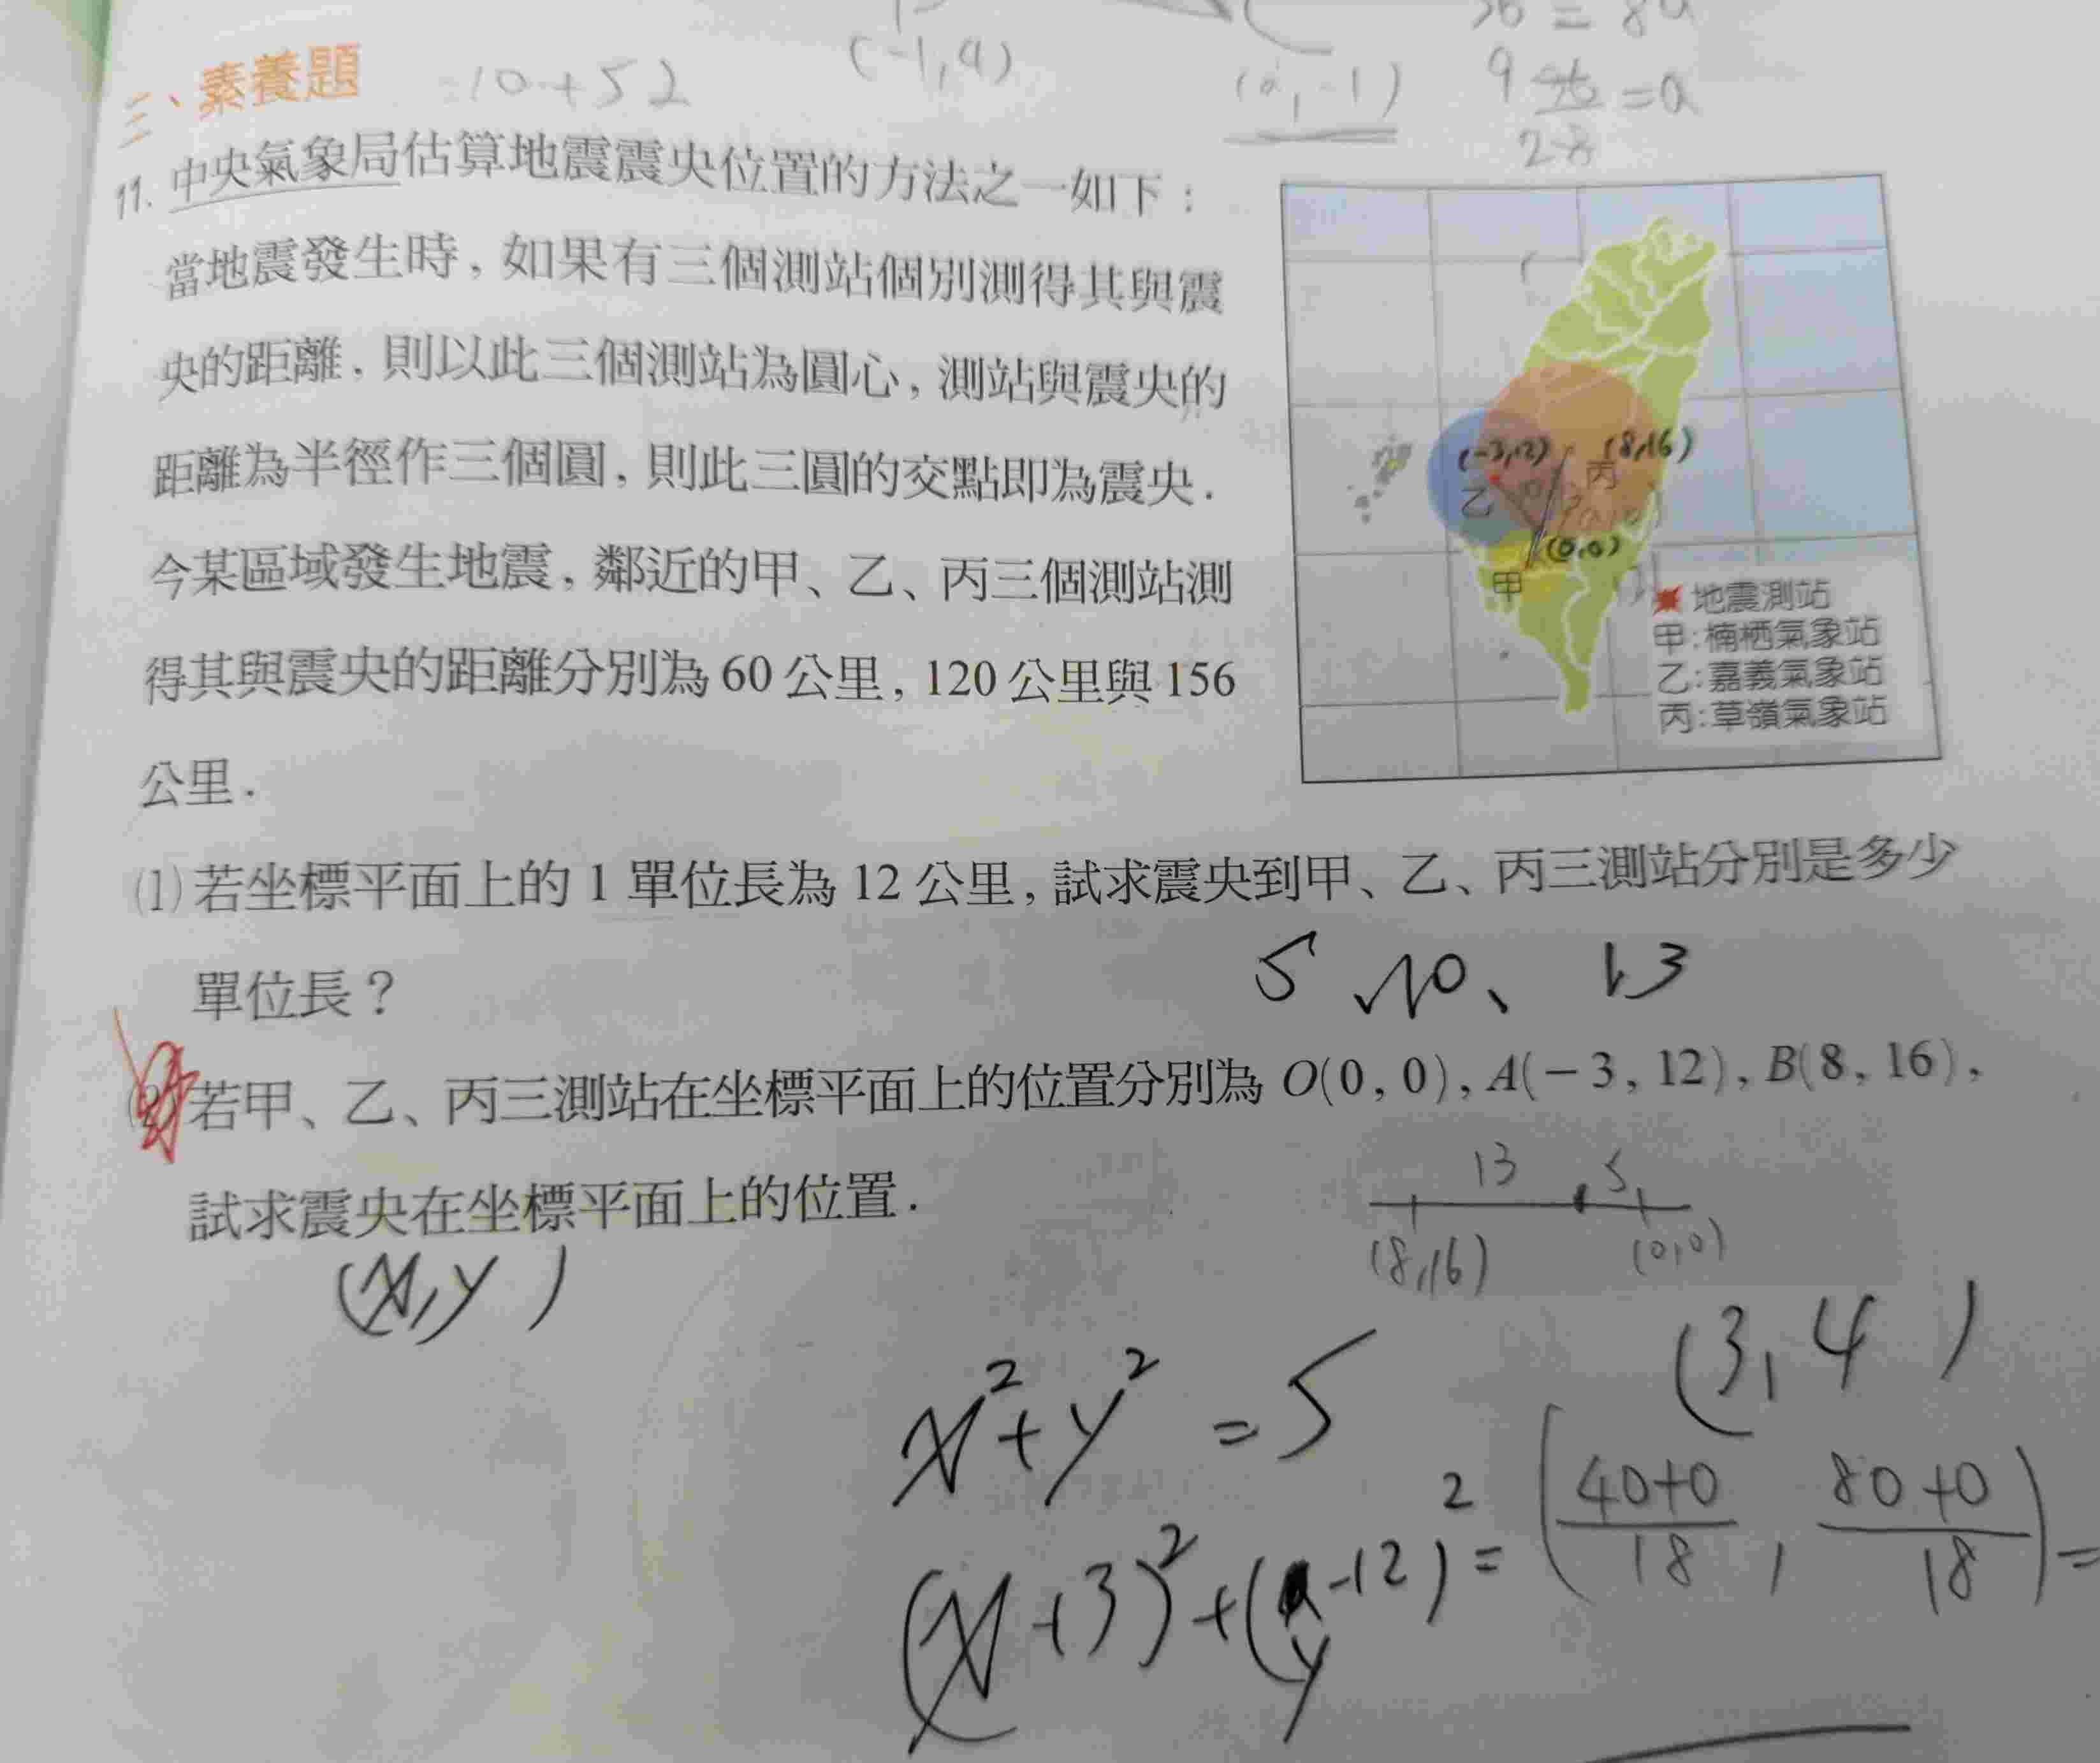 (-1,9)
三、素養題
=10+52
(a,-1)
=a
11. 中央氣象局估算地震震央位置的方法之一如下：
當地震發生時，如果有三個測站個別測得其與震
央的距離，則以此三個測站為圓心，測站與震央的
距離為半徑作三個圓，則此三圓的交點即為震央．
今某區域發生地震，鄰近的甲、乙、丙三個測站測
得其與震央的距離分別為 60 公里，120 公里與 156
公里．
(-3,12)
(8,16)
丙
乙
(0,0)
甲
地震測站
甲：楠栖氣象站
乙：嘉義氣象站
丙：草嶺氣象站
(1) 若坐標平面上的 1 單位長為 12 公里，試求震央到甲、乙、丙三測站分別是多少
單位長？
5、10、13
(2) 若甲、乙、丙三測站在坐標平面上的位置分別為 O(0, 0)，A(－3, 12)，B(8, 16)，
試求震央在坐標平面上的位置．
13 5
(8,16) (0,0)
(x,y)
(3,4)
x²+y²=5
(x+3)²+(y-12)²=
(40+0/18, 80+0/18)=